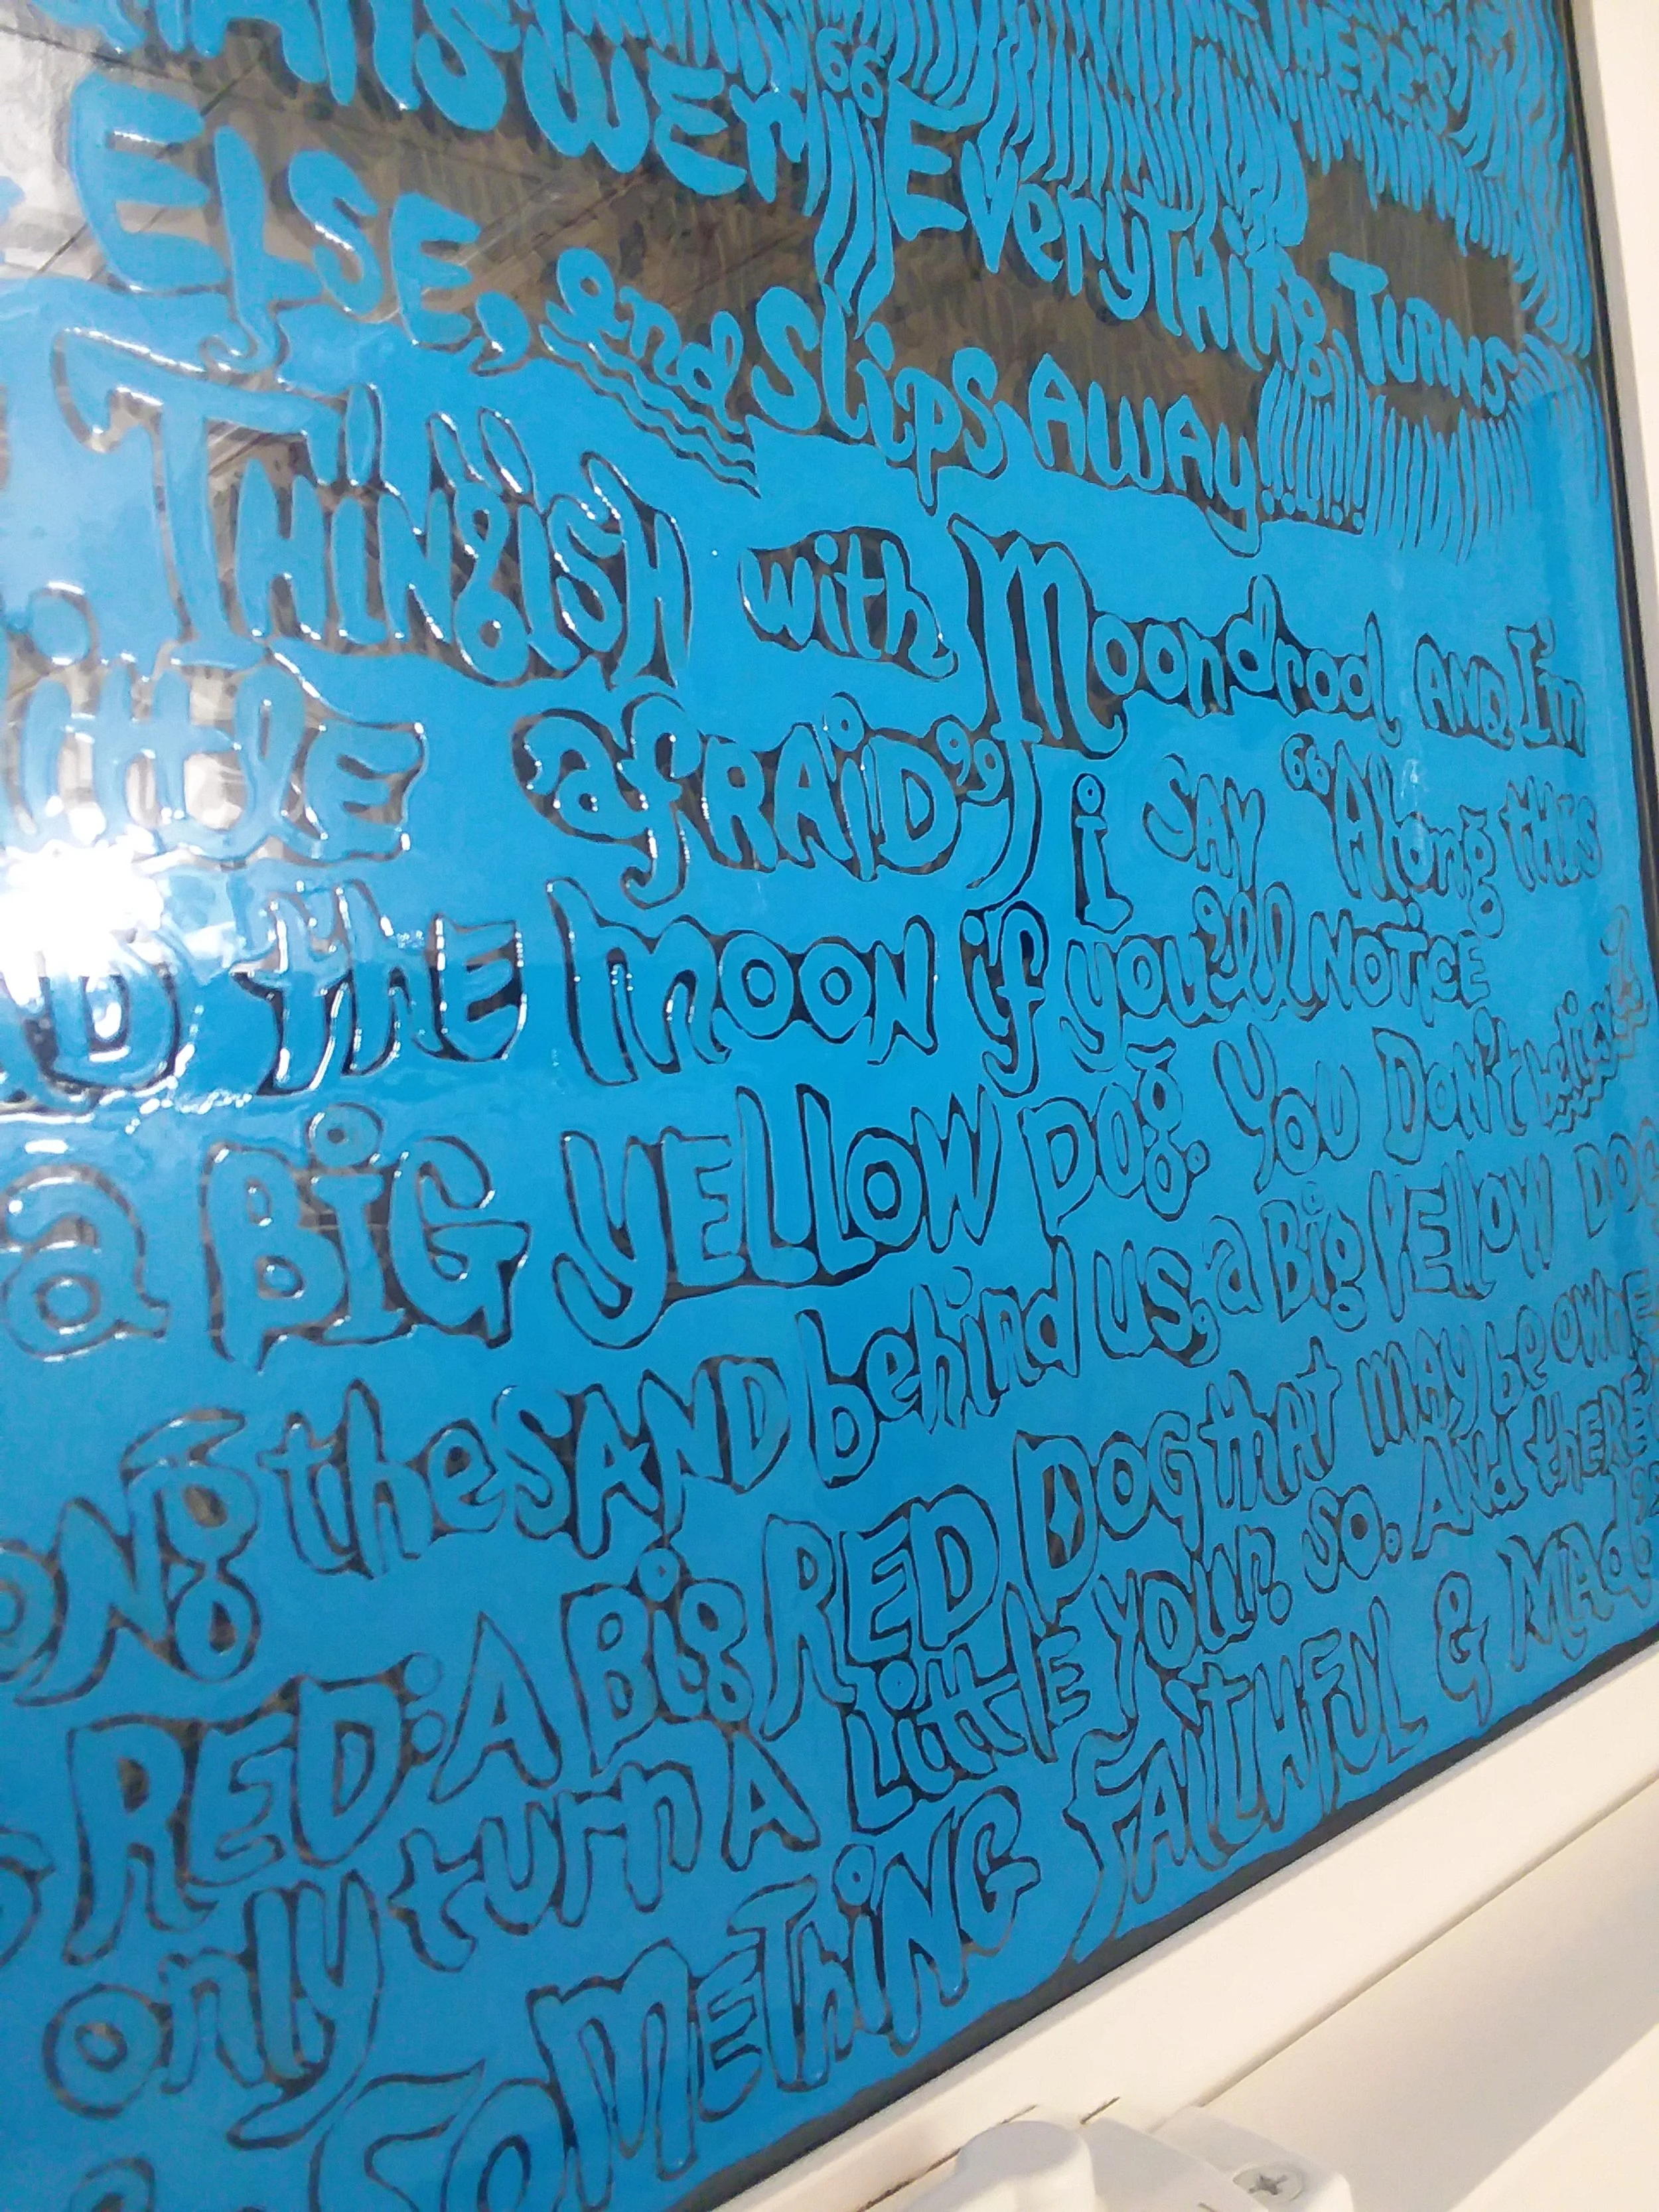 HERE'S
ANSWER "EVERYTHING TURNS
ELSE, and Slips AWAy!!!!!!
THINgISH with Moondrool AND I'm
little afRAiD" i SAY "Along this
the moon if you'll NOTiCE
a BiG YELLOW DOg. YOU DON't believe
the SAND behind us, a Big YELLOW DOG
RED: A Big RED DOG that may be OWNE
only turn A little your so. And thERE's
SOMEThiNG FAiTHFUL & MAd